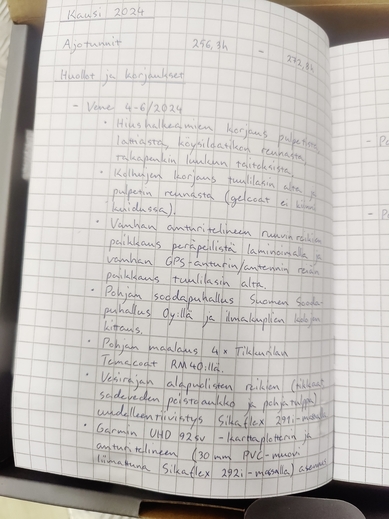 Kausi 2024
Ajotunnit 256,3h - 272,8h
Huollot ja korjaukset
- Vene 4-6/2024
• Hiushalkeamien korjaus pulpetin
lattiasta, köysilaatikon reunasta,
takapenkin luukun taitoksista
• Kolhujen korjaus tuulilasin alta ja
pulpetin reunasta (gelcoat ei kiinni
kuidussa).
• Vanhan anturitelineen ruuvinreikien
paikkaus peräpeilistä laminoimalla ja
vanhan GPS-anturin/antennin reiän
paikkaus tuulilasin alta.
• Pohjan soodapuhallus Suomen Sooda-
puhallus Oy:llä ja ilmakuplien kolojen
kittaus.
• Pohjan maalaus 4 x Tikkurilan
Temacoat RM40:llä.
• Vesirajan alapuolisten reikien (tikkaat,
sadeveden poistoaukko ja pohjatulppa)
uudelleentiivistys Sikaflex 291i-massalla
• Garmin UHD 92sv -karttaplotterin ja
anturitelineen (30 mm PVC-muovi
liimattuna Sikaflex 292i-massalla) asennus
- Po
- Po